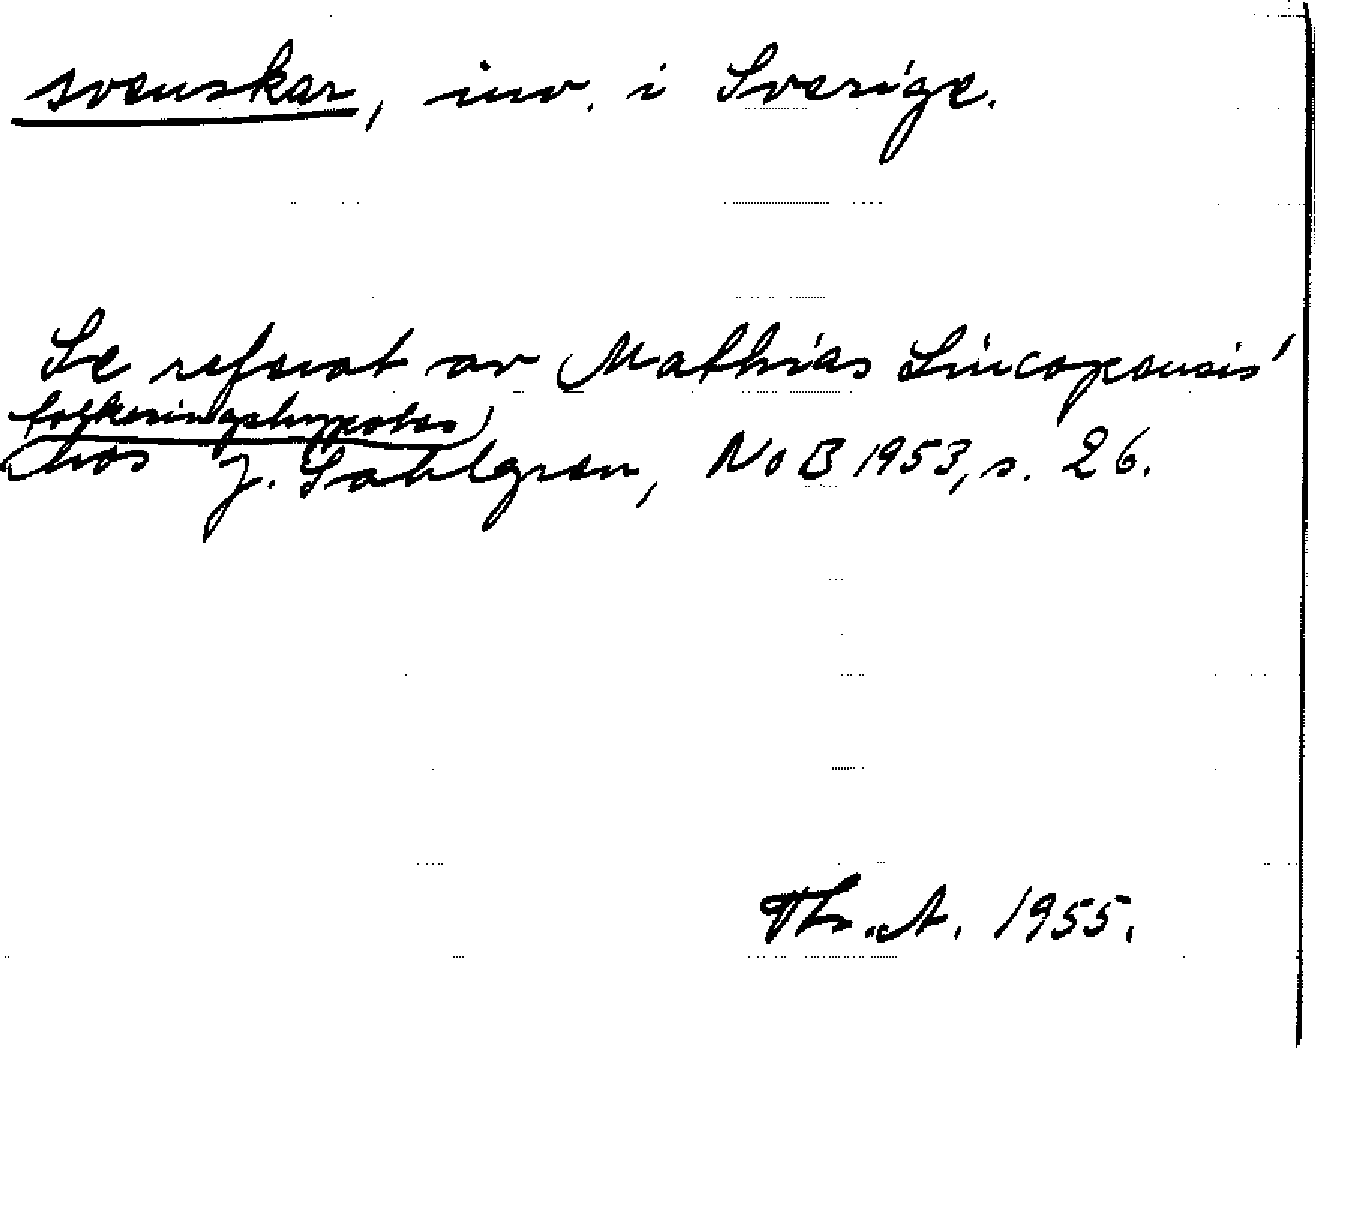 svenskar, inv. i Sverige.
Se referat av Mathias Lincopensis'
tolkningshypotes
hos J. Sahlgren, NoB 1953, s. 26.
Th. A. 1955.